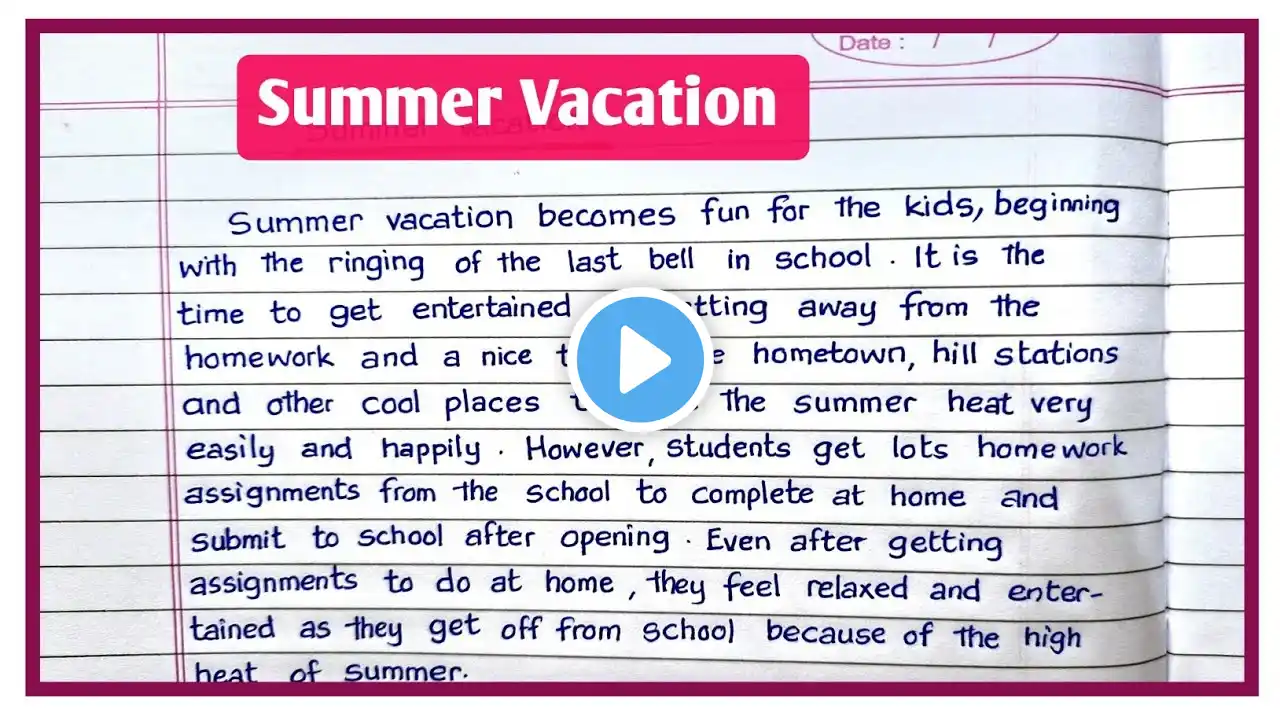 Date : / /
Summer Vacation
Summer vacation
Summer vacation becomes fun for the kids, beginning
with the ringing of the last bell in school. It is the
time to get entertained tting away from the
homework and a nice hometown, hill stations
and other cool places the summer heat very
easily and happily. However, students get lots homework
assignments from the school to complete at home and
submit to school after opening. Even after getting
assignments to do at home, they feel relaxed and enter-
tained as they get off from school because of the high
heat of summer.